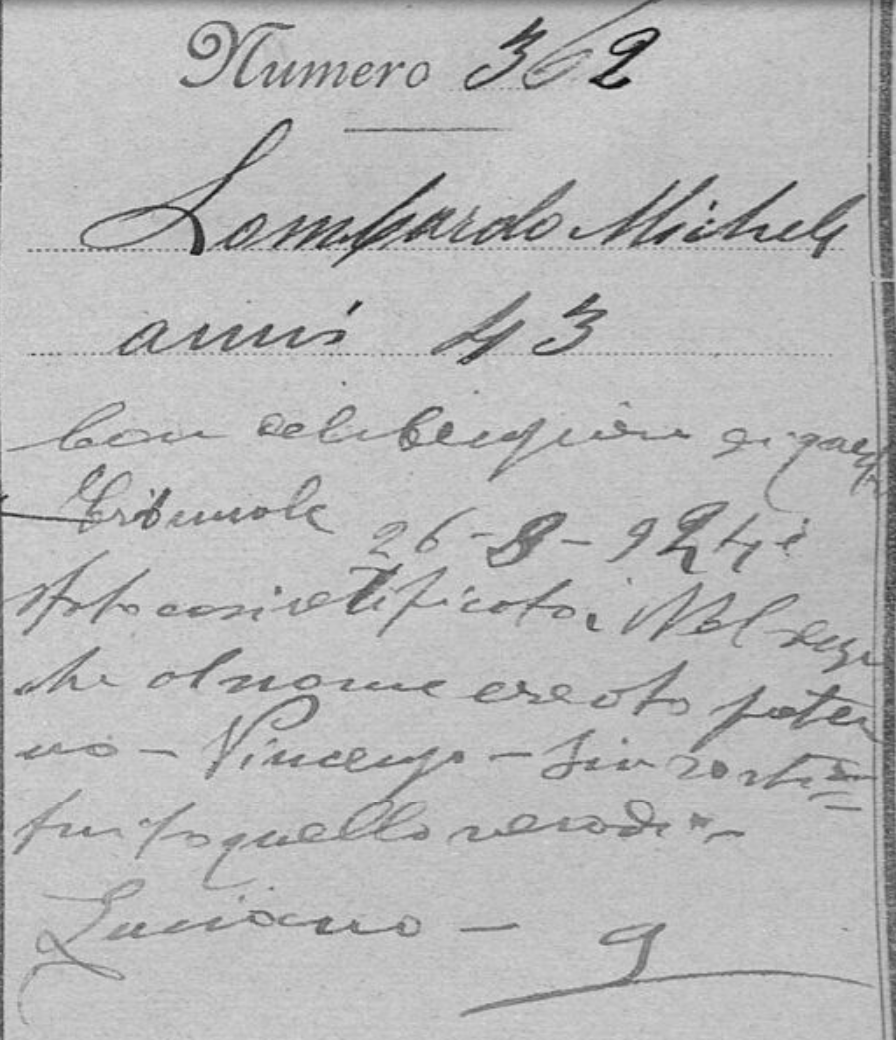 Numero 362
Lombardo Michele
anni 43
Con deliberazione di questo
Tribunale 26-8-924 è
stato così rettificato: Nel senso
che al nome errato pater
no - Vincenzo - sia sosti=
tuito quello vero di -
Luciano -